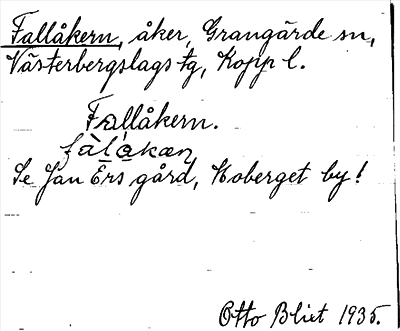 Fallåkern, åker, Grangärde sn,
Västerbergslags tg, Kopp l.
Fallåkern.
fàlákæn
Se Jan Ers gård, Koberget by!
Otto Blixt 1935.